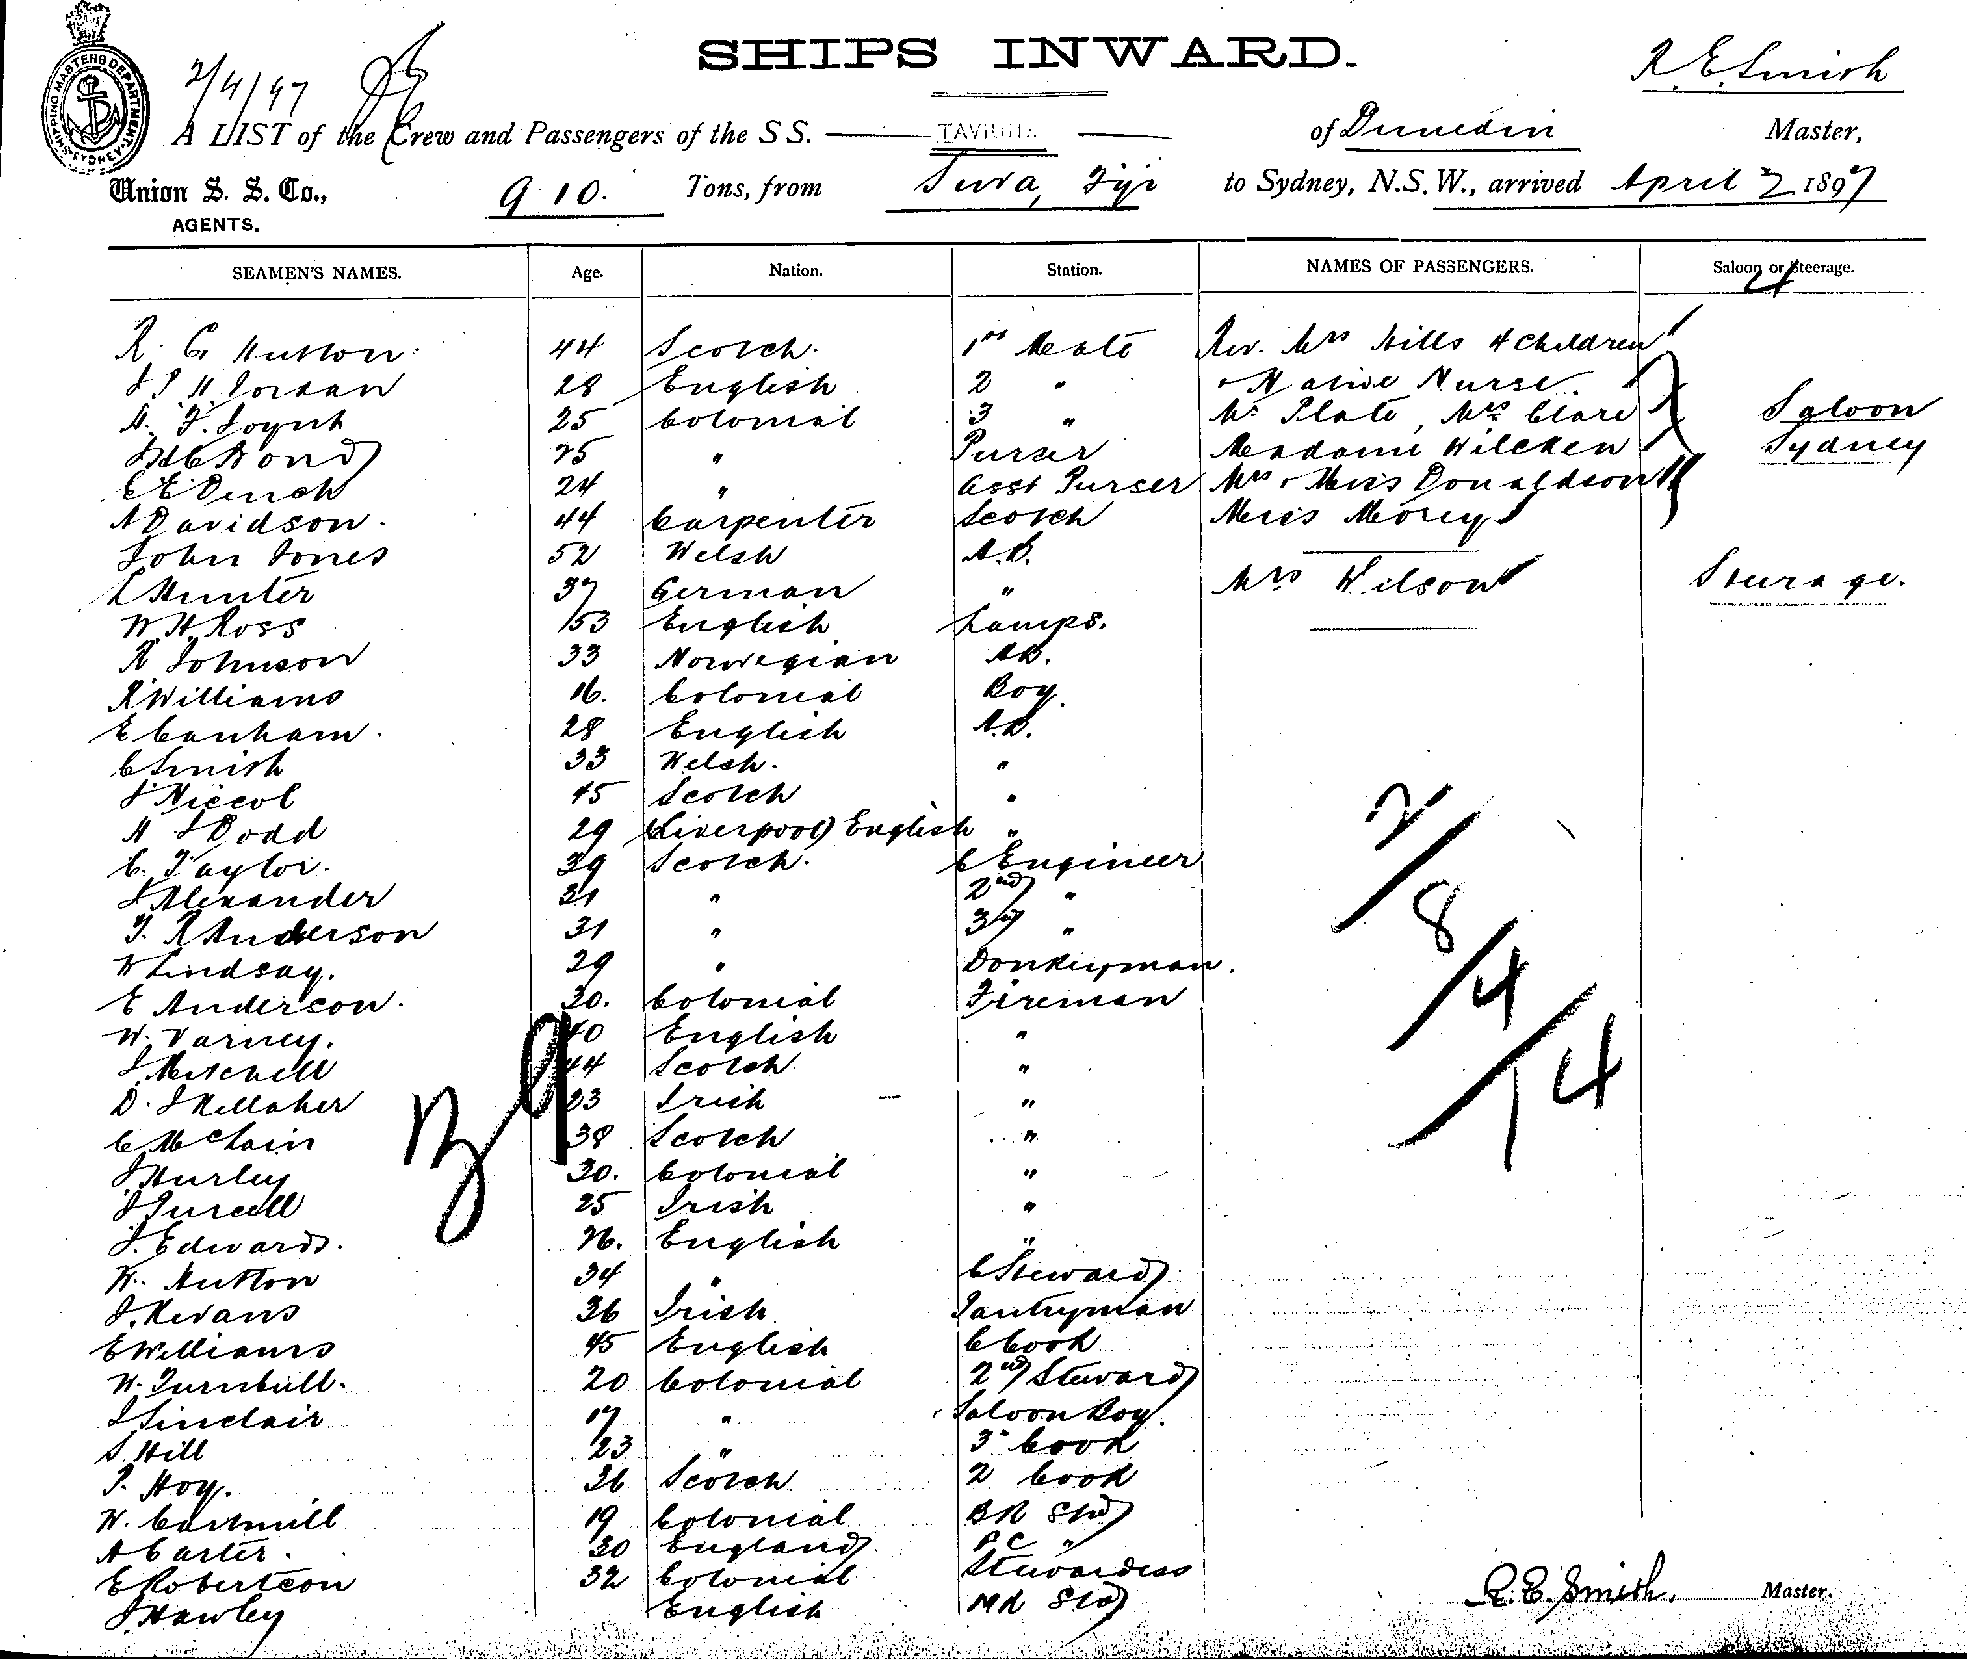 SHIPS INWARD.
R. E. Smith
2/4/97
SHIPPING MASTERS DEPARTMENT SYDNEY
A LIST of the Crew and Passengers of the SS. TAVIUNI of Dunedin Master,
Union S. S. Co., 910. Tons, from Suva, Fiji to Sydney, N.S.W., arrived April 2 1897
AGENTS.
SEAMEN'S NAMES. Age. Nation. Station. NAMES OF PASSENGERS. Saloon or Steerage.
R. G Hutton 44 Scotch. 1st Mate Rev. Mrs Hills 4 Children
28 English 2 " Native Nurse.
25 Colonial 3 " Mr Plate, Mrs Clare Saloon
25 " Purser Madame Wilcken Sydney
24 " Asst Purser Mrs Miss Donaldson
A Davidson. 44 Carpenter Scotch Miss Morey
John Jones 52 Welsh A.B.
L Hunter 37 German " Mrs Wilson Steerage.
W. H. Ross 53 English Lamps.
R Johnson 33 Norwegian AB.
R Williams 16. Colonial Boy.
E Canham. 28 English A.B.
C Smith 33 Welsh. "
J Niccol 45 Scotch "
H J Dodd 29 (Liverpool) English "
C. Taylor. 39 Scotch. C Engineer
J Alexander 31 " 2nd "
T. R Anderson 31 " 3rd "
W Lindsay. 29 " Donkeyman.
E Anderson. 30. Colonial Fireman
W. Varney. 40 English "
J. Mitchell 44 Scotch "
D. J Kellaher 23 Irish "
C McLain 38 Scotch "
J Hurley 30. Colonial "
J Purcell 25 Irish "
J. Edwards. 26. English "
W. Hutton 34 " C Steward
J. Kevans 36 Irish Pantryman
E Williams 45 English C Cook
W. Turnbull. 20 Colonial 2nd Steward
J Sinclair 17 " Saloon Boy.
S Hill 23 " 3 Cook
P. Hoy. 26 Scotch 2 Cook
W. Cartmill 19 Colonial BR Std
A Carter. 30 England FC "
E Robertson 32 Colonial Stewardess
J. Hawley English Std
R. E. Smith. Master.